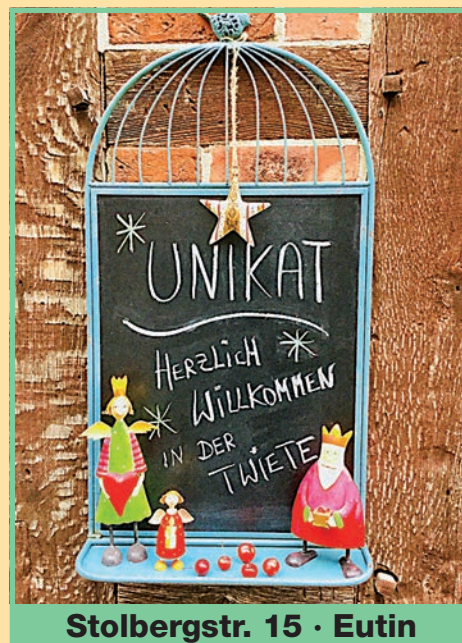 UNIKAT
HERZLICH
WILLKOMMEN
IN DER
TWIETE
Stolbergstr. 15 · Eutin